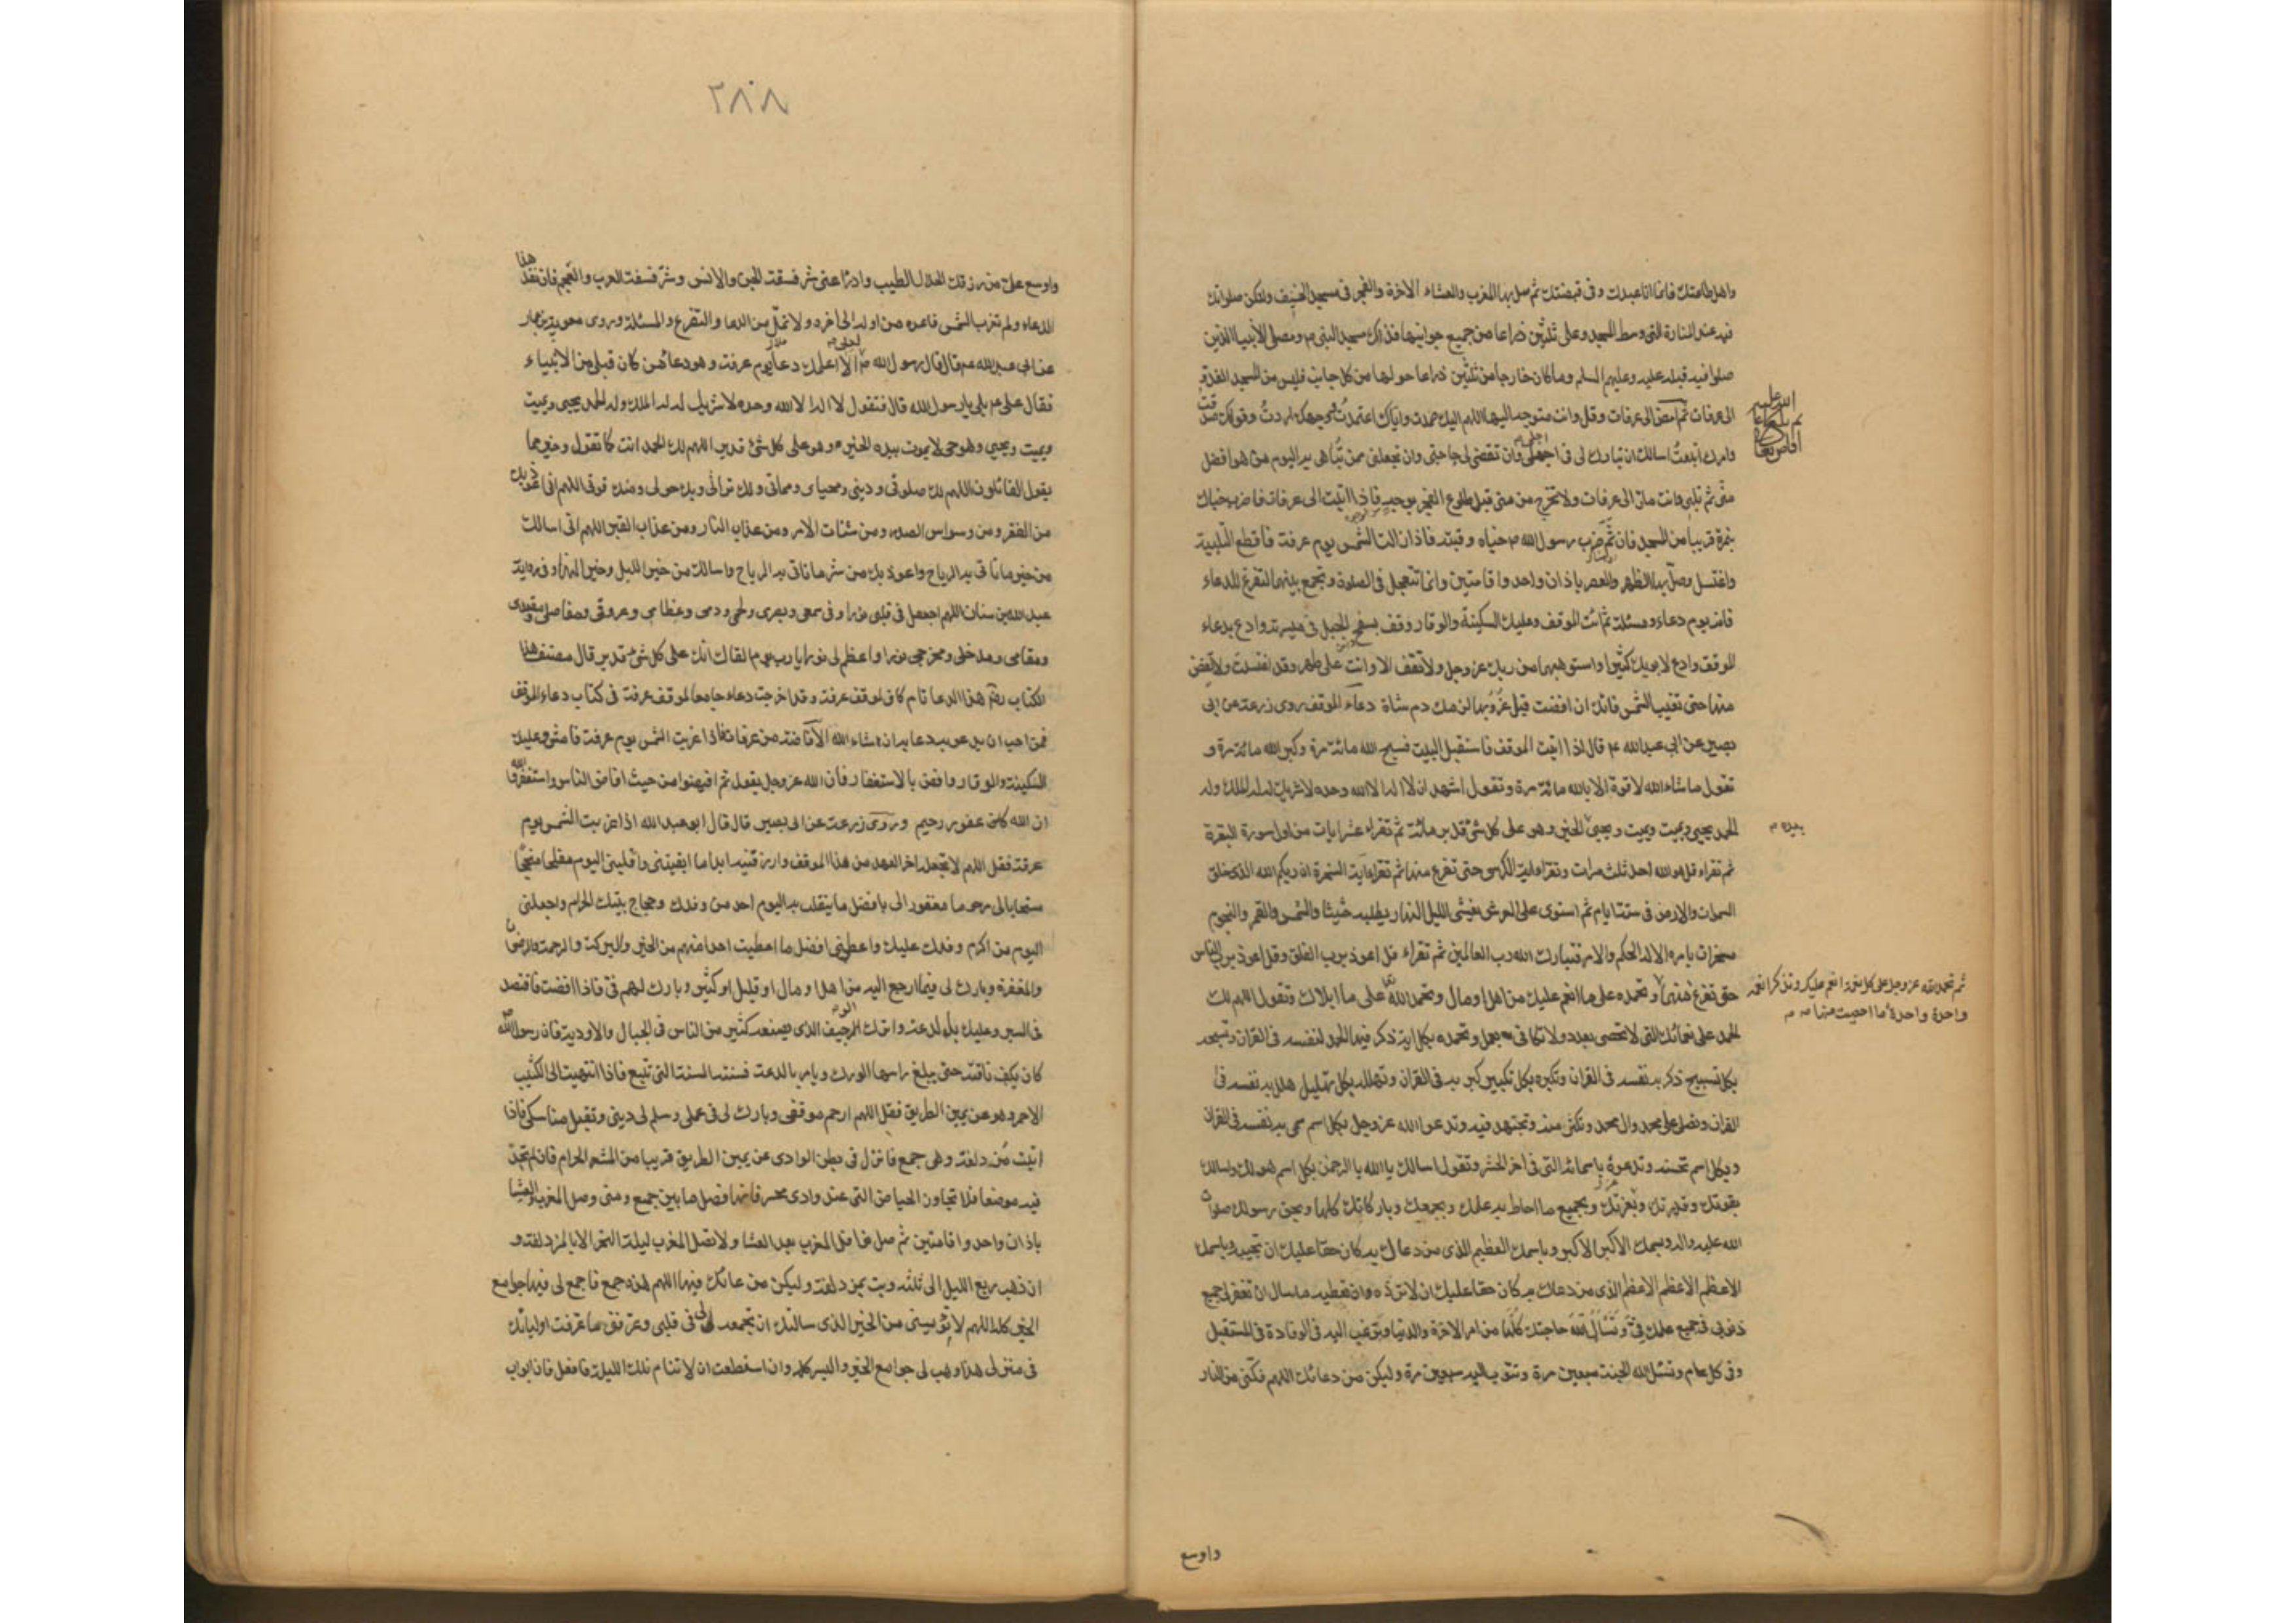 واهل طاعتك فانما انا عبدك وفي قبضتك ثم صل بها المغرب والعشاء الاخرة والفجر في مسجد الخيف ولتكن صلوتك
فيه عند المنارة التي وسط المسجد وعلى ثلثين ذراعا من جميع جوانبها فذلك مسجد النبي م ومصلى الانبياء الذين
صلوا فيه قبله عليه وعليهم السلم وما كان خارجا من ثلثين ذراعا حولها من كل جانب فليس من المسجد الغدو
الى عرفات ثم امض الى عرفات وقل وانت متوجه اليها اللهم اليك صمدت واياك اعتمدت ووجهك اردت وقولك صدقت
وامرك اتبعت اسالك ان تبارك لى في اجلى وان تقضى لى حاجتى وان تجعلنى ممن تباهى به اليوم من هو افضل
منى ثم تلبى وانت مار الى عرفات ولا تخرج من منى قبل طلوع الفجر بوجه فاذا اتيت الى عرفات فاضرب خباك
بنمرة قريبا من المسجد فان ثم ضرب رسول الله م خباه وقبته فاذا زالت الشمس يوم عرفة فاقطع التلبية
واغتسل وصل بها الظهر والعصر باذان واحد واقامتين وانما تتعجل في الصلوة وتجمع بينهما لتفرغ للدعاء
فانه يوم دعاء ومسئلة ثم ائت الموقف وعليك السكينة والوقار وقف بسفح الجبل في ميسرته وادع بدعاء
الموقف وادع لابويك كثيرا واستوهبهما من ربك عز وجل ولا تقف الا وانت على طهر وقد اغتسلت ولا تفض
منها حتى تغيب الشمس فانك ان افضت قبل غروبها لزمك دم شاة دعاء الموقف روى زرعة عن ابى
بصير عن ابى عبد الله ع قال اذا اتيت الموقف فاستقبل البيت فسبح الله مائة مرة وكبر الله مائة مرة و
تقول ما شاء الله لا قوة الا بالله مائة مرة وتقول اشهد ان لا اله الا الله وحده لا شريك له له الملك وله
الحمد يحيى ويميت ويميت ويحيى الخير وهو على كل شئ قدير مائة ثم تقراء عشر ايات من اول سورة البقرة
بيده م
ثم تقراء قل هو الله احد ثلث مرات وتقراء اية الكرسى حتى تفرغ منها ثم تقراء اية السخرة ان ربكم الله الذى خلق
السموات والارض في ستة ايام ثم استوى على العرش يغشى الليل النهار يطلبه حثيثا والشمس والقمر والنجوم
مسخرات بامره الا له الحكم والامر تبارك الله رب العالمين ثم تقراء قل اعوذ برب الفلق وقل اعوذ برب الناس
حتى تفرغ منهما وتحمده على ما انعم عليك من اهل او مال وتحمد الله على ما ابلاك وتقول اللهم لك
ثم تحمد الله عز وجل على كل نعمة انعم عليك وتذكر انعمه
واحدة واحدة ما احصيت منها
الحمد على نعمائك التى لا تحصى بعدد ولا تكافى بعمل وتحمده بكل اية ذكر فيها الحمد لنفسه في القران وتسبحه
بكل تسبيح ذكر به نفسه في القران وتكبره بكل تكبير كبر به في القران وتهلله بكل تهليل هلل به نفسه في
القران وتصل على محمد وال محمد وتكثر منه وتجتهد فيه وتدعو الله عز وجل بكل اسم سمى به نفسه في القران
وبكل اسم تحسنه وتدعوه باسمائه التى في اخر الحشر وتقول اسالك يا الله يا الرحمن بكل اسم هو لك واسالك
بقوتك وقدرتك وبعزتك وبجميع ما احاط به علمك وبجمعك وباركانك كلها وبحق رسولك صلوات
الله عليه واله وباسمك الاكبر الاكبر وباسمك العظيم الذى من دعاك به كان حقا عليك ان تجيبه وباسمك
الاعظم الاعظم الاعظم الذى من دعاك به كان حقا عليك ان لا ترده وان تعطيه ما سال ان تغفر لى جميع
ذنوبى في جميع علمك في وتسأل الله حاجتك كلها من امر الاخرة والدنيا وترغب اليه في الوفادة في المستقبل
وفي كل عام وتسئل الله الجنة سبعين مرة وتتوب اليه سبعين مرة وليكن من دعائك اللهم فكنى من النار
واوسع
٣٨٠٨
واوسع على من رزقك الحلال الطيب وادرا عنى شر فسقة الجن والانس وشر فسقة العرب والعجم فان نفد هذا
الدعاء ولم تغرب الشمس فاعده من اوله الى اخره ولا تمل من الدعا والتضرع والمسئلة وروى معوية بن عمار
عن ابى عبد الله ع قال قال رسول الله م لعلى الا اعلمك دعاء يوم عرفة وهو دعاء من كان قبلى من الانبياء
فقال على ع بلى يا رسول الله قال فتقول لا اله الا الله وحده لا شريك له له الملك وله الحمد يحيى ويميت
ويميت ويحيى وهو حى لا يموت بيده الخير وهو على كل شئ قدير اللهم لك الحمد انت كما تقول وخير مما
يقول القائلون اللهم لك صلوتى ودينى ومحياى ومماتى ولك تراثى وبك حولى ومنك قوتى اللهم انى اعوذ بك
من الفقر ومن وسواس الصدر ومن شتات الامر ومن عذاب النار ومن عذاب القبر اللهم انى اسالك
من خير ما تاتى به الرياح واعوذ بك من شر ما تاتى به الرياح واسالك من خير الليل وخير النهار وفي رواية
عبد الله بن سنان اللهم اجعل في قلبى نورا وفى سمعى وبصرى ولحمى ودمى وعظامى وعروقى ومفاصلى ومقعدى
ومقامى ومدخلى ومخرجى نورا واعظم لى نورا يا رب يوم القاك انك على كل شئ قدير قال مصنف هذا
الكتاب هذا الدعا تام كاف لموقف عرفة وقد اخرجت دعاء جامعا لموقف عرفة في كتاب دعاء الموقف
فمن احب ان يدعو به دعا به ان شاء الله الافاضة من عرفات فاذا غربت الشمس يوم عرفة فامض وعليك
السكينة والوقار وافض بالاستغفار فان الله عز وجل يقول ثم افيضوا من حيث افاض الناس واستغفروا الله
ان الله كان غفور رحيم وروى زرعة عن ابى بصير قال قال ابو عبد الله اذا غربت الشمس يوم
عرفة فقل اللهم لا تجعله اخر العهد من هذا الموقف وارزقنيه ابدا ما ابقيتنى واقلبنى اليوم مفلحا منجحا
مستجابا لى مرحوما مغفورا لى بافضل ما ينقلب به اليوم احد من وفدك وحجاج بيتك الحرام واجعلنى
اليوم من اكرم وفدك عليك واعطنى افضل ما اعطيت احدا منهم من الخير والبركة والرحمة والرضوان
والمغفرة وبارك لى فيما ارجع اليه من اهل او مال او قليل او كثير وبارك لهم فى فاذا افضت فاقتصد
فى السير وعليك بالدعة واترك الوجيف الذى يصنعه كثير من الناس في الجبال والاودية فان رسول الله
كان يكف ناقته حتى يبلغ راسها الورك ويامر بالدعة فسنته السنة التى تتبع فاذا انتهيت الى الكثيب
الاحمر وهو عن يمين الطريق فقل اللهم ارحم موقفى وبارك لى في عملى وسلم لى دينى وتقبل مناسكى فاذا
اتيت مزدلفة وهى جمع فانزل في بطن الوادى عن يمين الطريق قريبا من المشعر الحرام فان لم تجد
فيه موضعا فلا تجاوز الحياض التى عند وادى محسر فانها فصل ما بين جمع ومنى وصل المغرب والعشا
باذان واحد واقامتين ثم صل نوافل المغرب بعد العشا ولا تصل المغرب ليلة النحر الا بالمزدلفة و
ان ذهب ربع الليل الى ثلثه وبت بمزدلفة وليكن من دعائك فيها اللهم هذه جمع فاجمع لى فيها جوامع
الخير كله اللهم لا تؤيسنى من الخير الذى سالتك ان تجمعه لى في قلبى وعرفنى ما عرفت اولياءك
في منزلى هذا وهب لى جوامع الخير واليسر كله وان استطعت ان لا تنام تلك الليلة فافعل فان ابواب